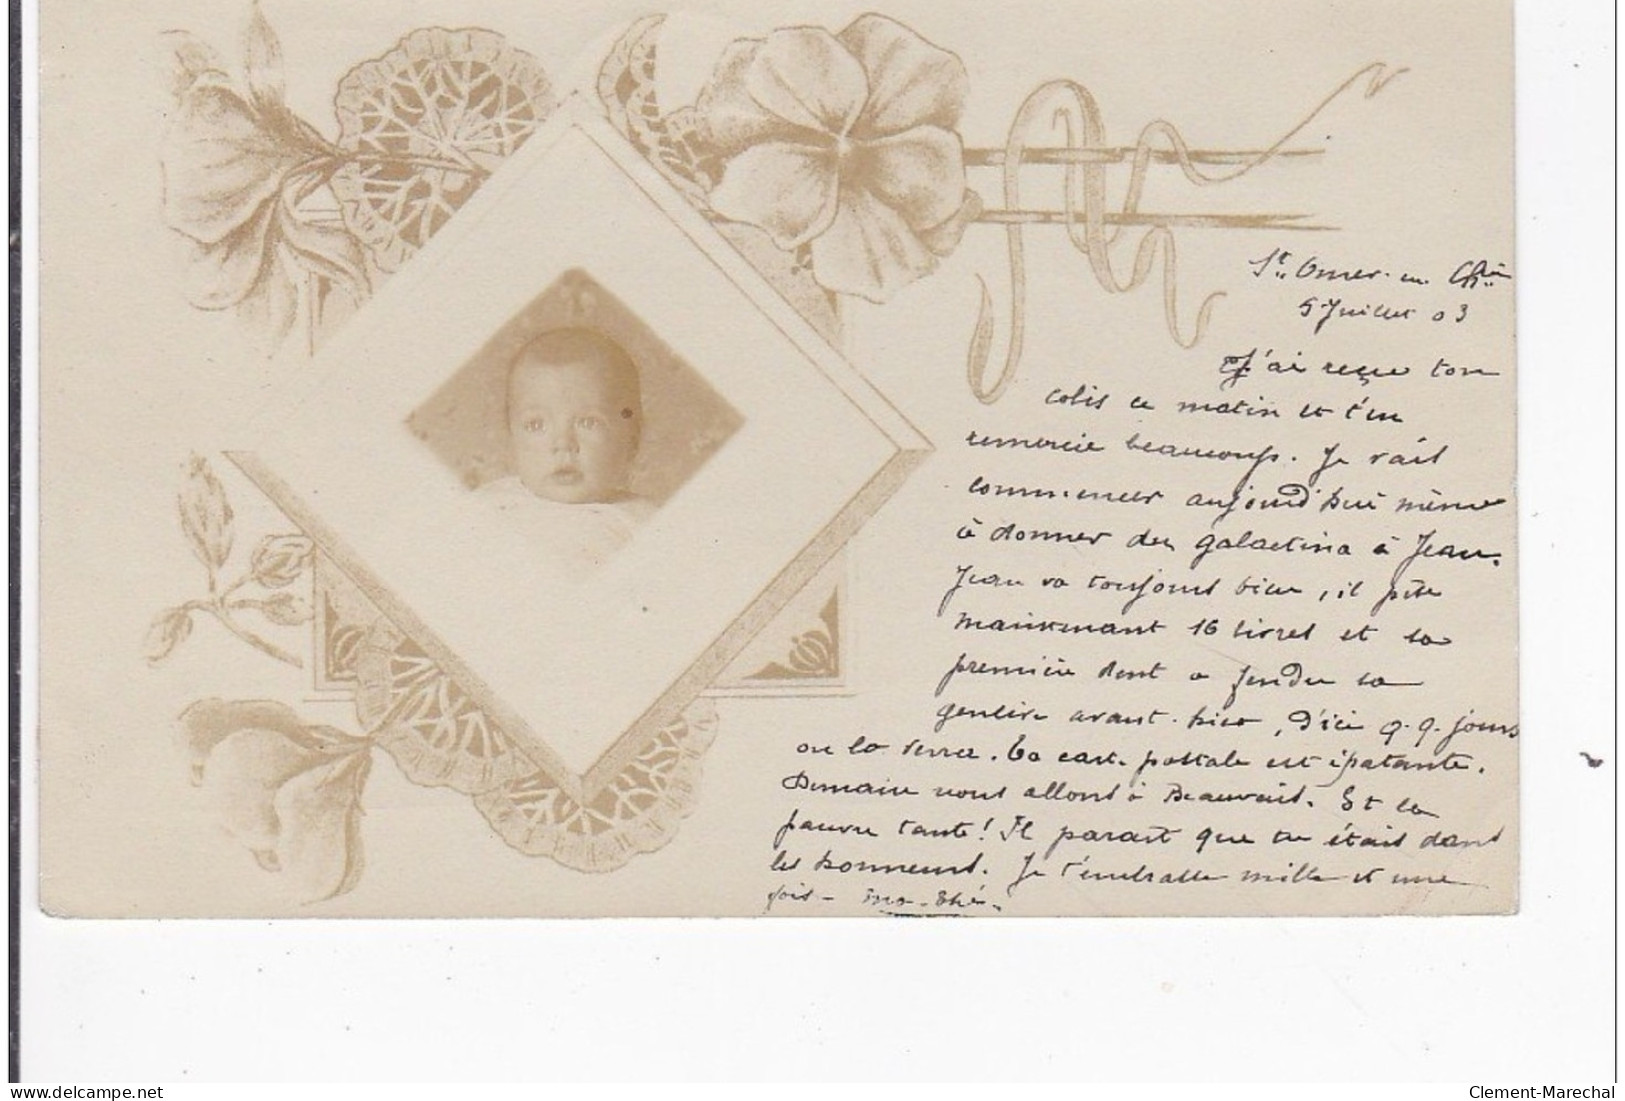 St. Omer. en Chée
5 Juillet 03
J'ai reçu ton
colis ce matin et t'en
remercie beaucoup. Je vais
commencer aujourd'hui même
à donner du galactina à Jean.
Jean va toujours bien, il pèse
maintenant 16 livres et sa
première dent a fendu sa
gencive avant-hier, d'ici q.q. jours
on la verra. Ta carte postale est épatante.
Demain nous allons à Beauvais. Et la
pauvre tante! Il parait que tu étais dans
les honneurs. Je t'embrasse mille et une
fois -
delcampe.net
Clement-Marechal